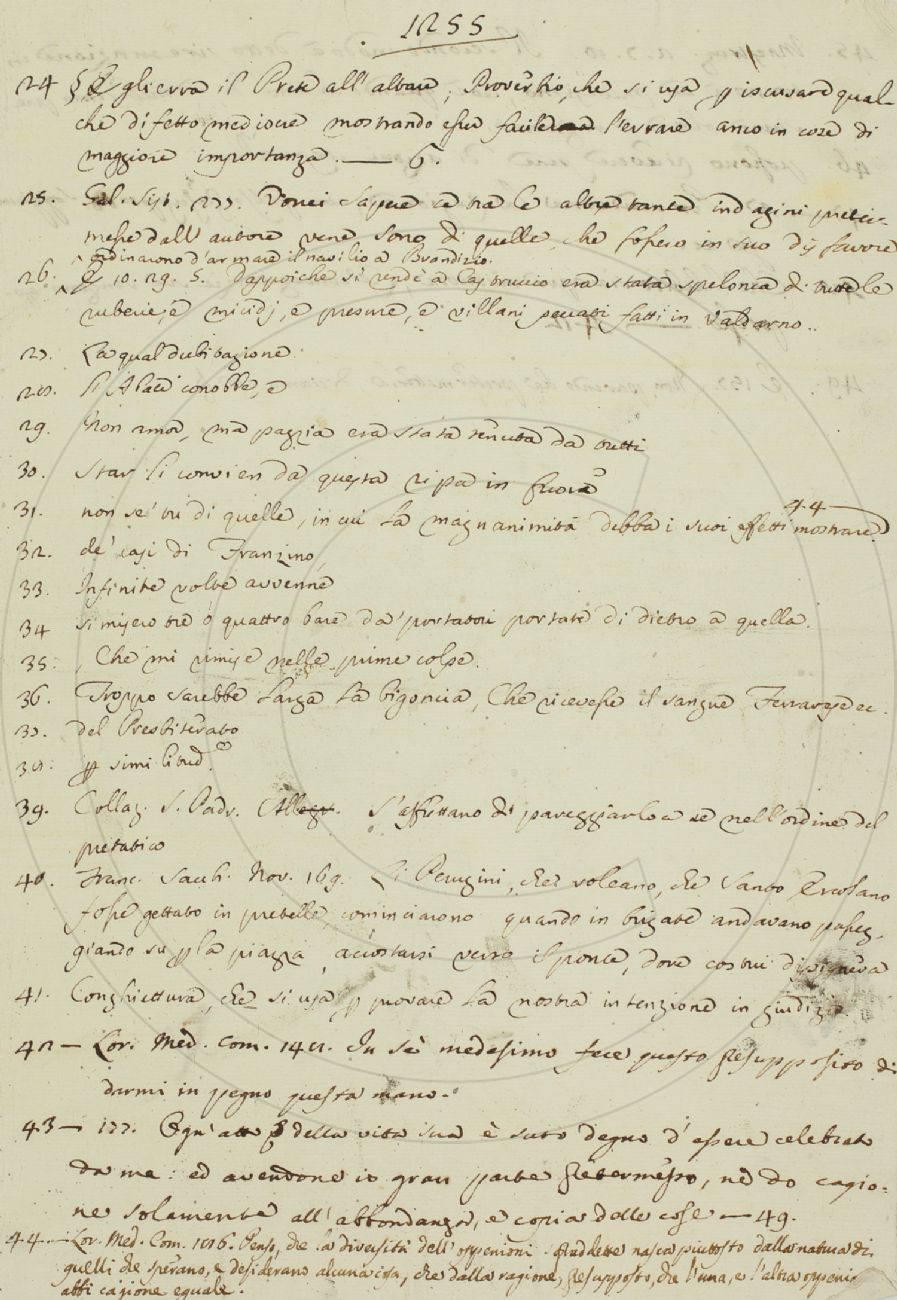 1255
24 § Egli erra il Prete all'altare; Proverbio, che si usa p iscusare qual-
che difetto mediocre mostrando esser facile l'errare anco in cose di
maggiore importanza. — 6.
25. Gal. Sist. 277. Vorrei sapere se tra le altre tante indagini prete-
messe dall'autore vene sono di quelle, che fossero in suo disfavore
ordinarono d'armare il navilio a Brandizio.
26. E 10. 29. 5. Dappoiché si rendè a Castruccio era stata spelonca di tutte le
ruberie, e micidj, e presure, e villani peccati fatti in Valdarno..
27. La qual dubitazione
28. li Alace' conobbe, e
29. Non amor, ma pazzia era stata tenuta da tutti
30. Star li convien da questa ripa in fuora
31. non se' tu di quelle, in cui la magnanimità debba i suoi effetti mostrare. 44
32. de' casi di Franzino,
33. Infinite volte avvenne
34 si misero tre o quattro bare da' portatori portate di dietro a quella.
35. , Che mi rimise nelle prime colpe.
36. Troppo sarebbe larga la bigoncia, Che ricevesse il sangue Ferrarese ec.
37. del Presbiterato
38. p similitud.
39. Collaz. S. Padr. S'affrettano di pareggiarlo a se nell'ordine del
pretatico
40. Franc. Sacch. Nov. 169. Li Perugini, che voleano, che Santo Ercolano
fosse gettato in pretelle, cominciarono quando in brigate andavano passeg-
giando su p la piazza, accostarsi verso il ponte, dove costui disegnava
41. Conghiettura, che si usa p provare la nostra intenzione in giudizio
42 — Lor. Med. Com. 148. In sè medesimo fece questo presupposito di
darmi in pegno questa mano.
43 — 177. Ogn'atto della vitta sua è suto degno d'essere celebrato
da me: ed avendone io gran parte pretermesso, ne do cagio-
ne solamente all'abbondanza, e copia delle cose — 49.
44 — Lor. Med. Com. 116. Penso, che la diversità dell'oppenioni predette nasca piuttosto dalla natura di
quelli che sperano, e desiderano alcuna cosa, che dalla ragione, presupposto, che l'una, e l'altra oppenione
abbi cagione eguale.